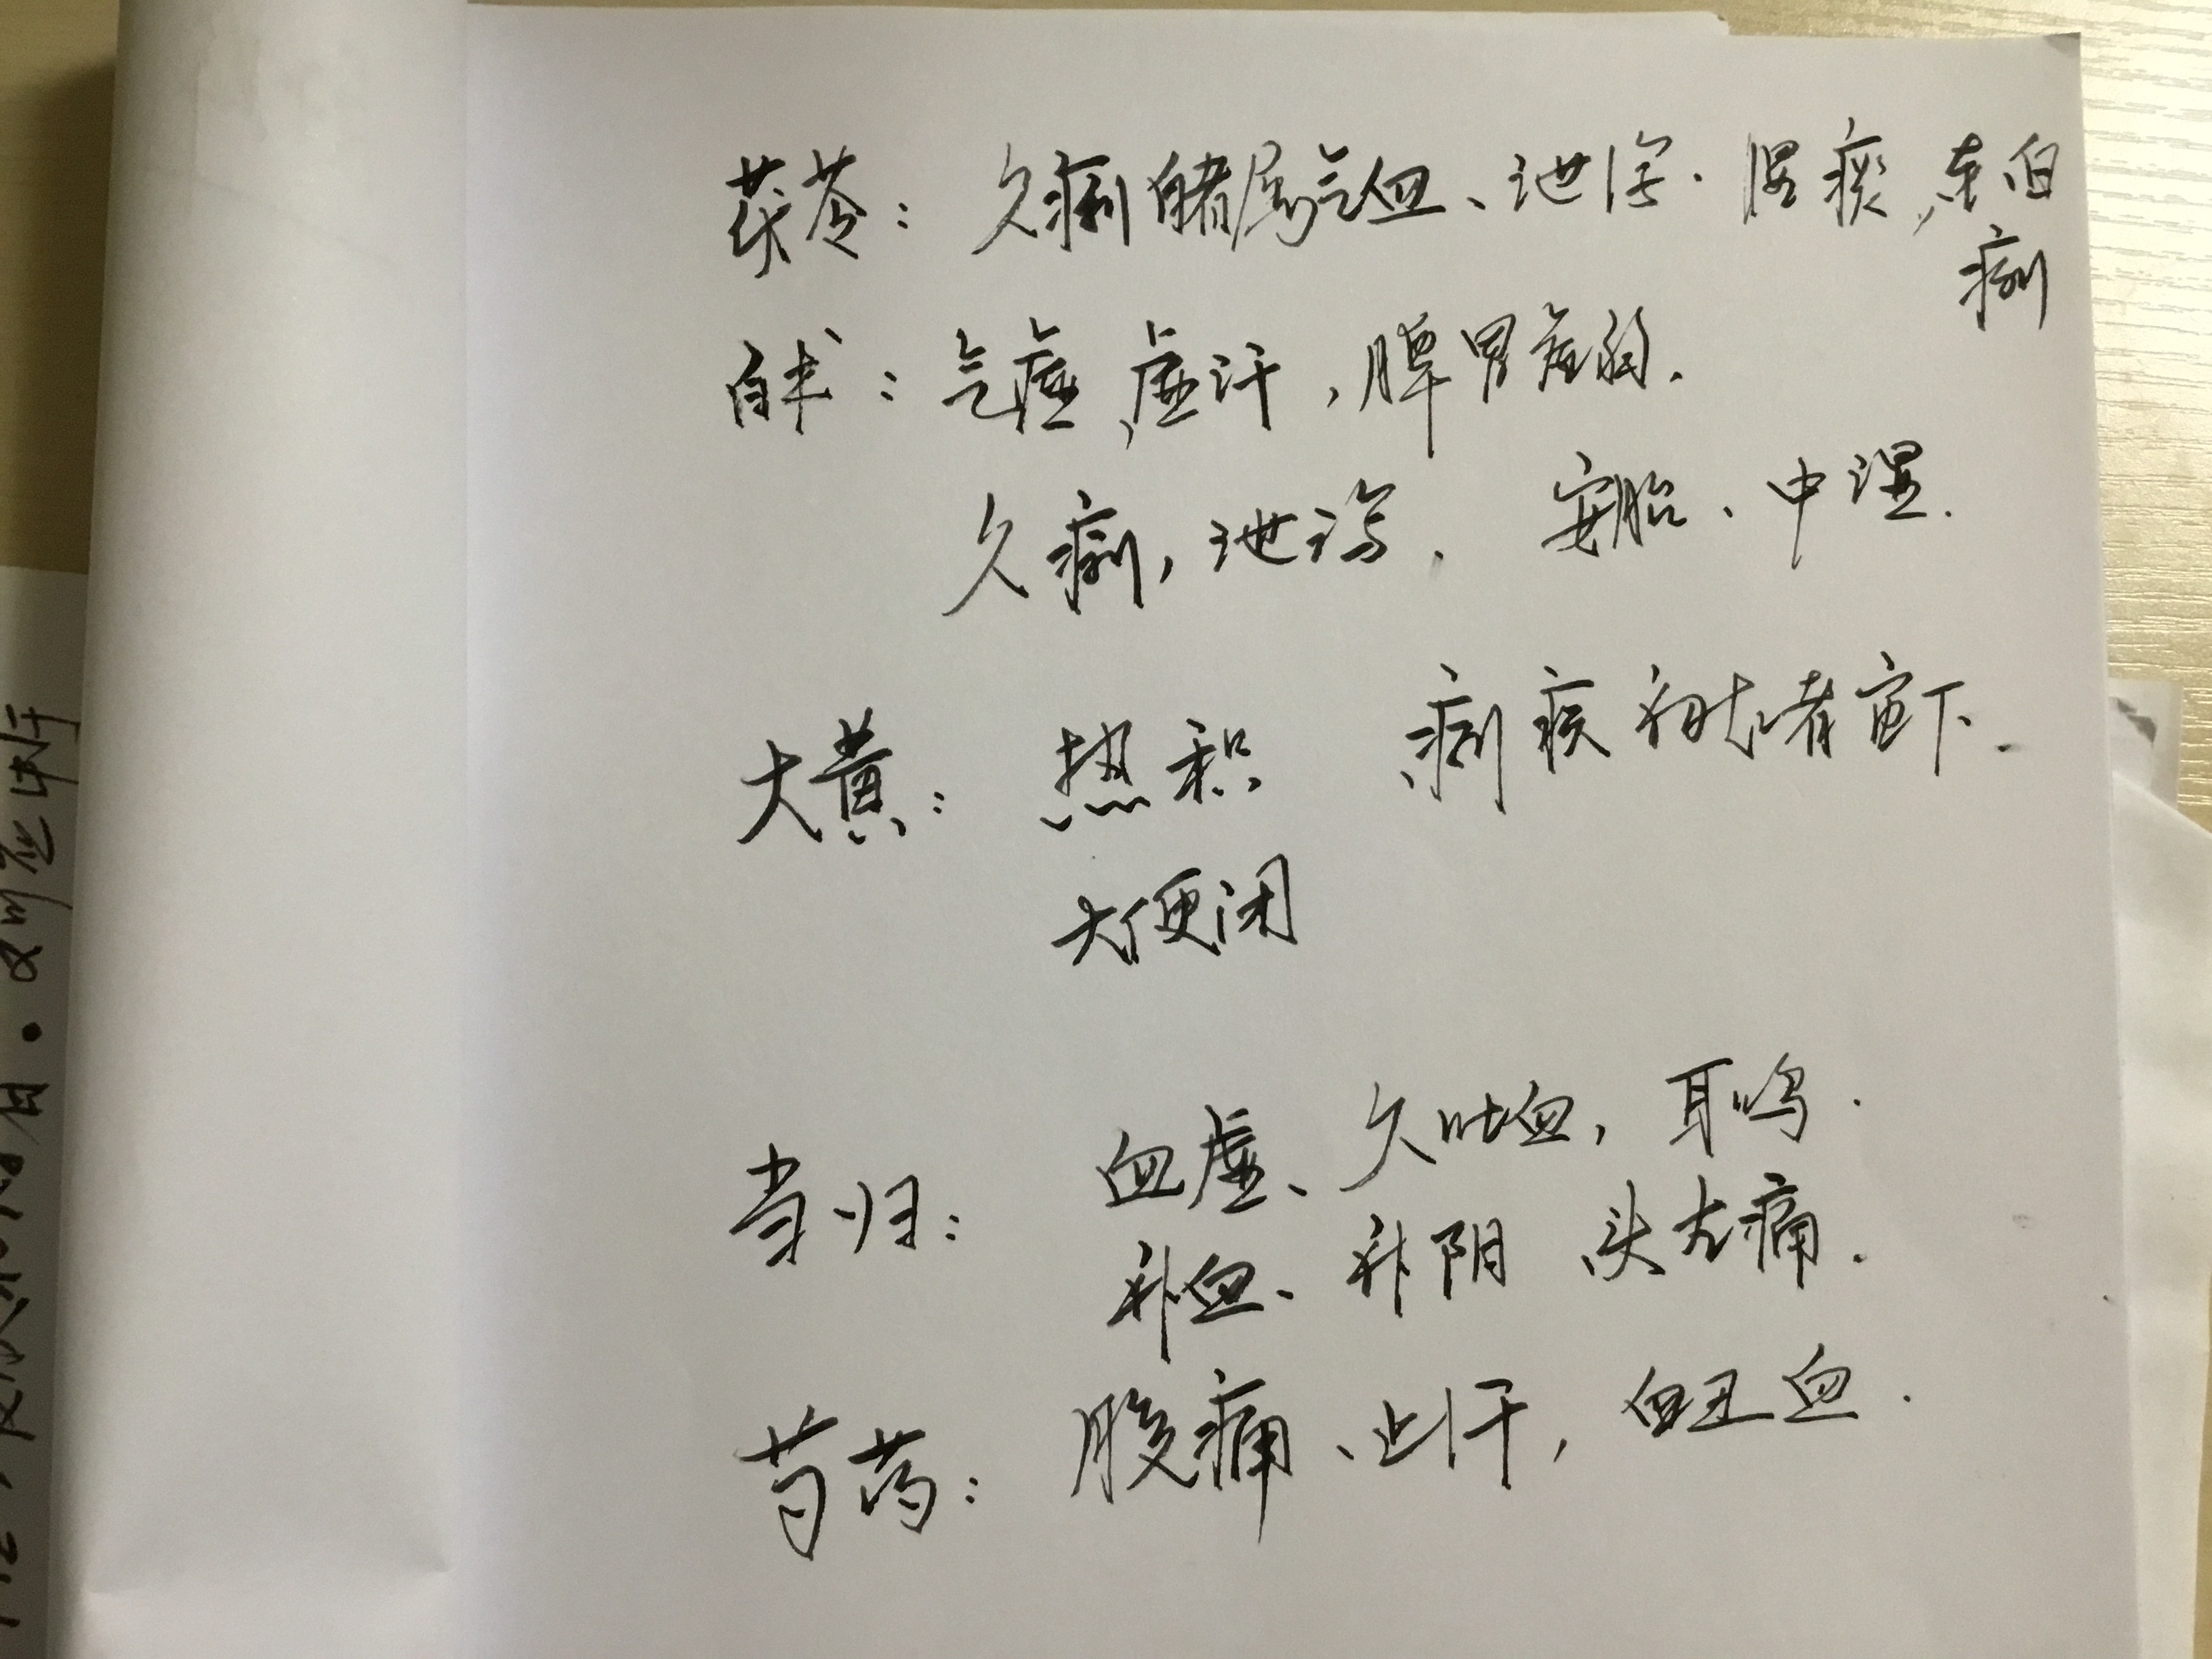 茯苓：久痢 属气血、泄泻. 湿痰、赤白
痢
白术：气虚、虚汗，脾胃虚弱.
久痢，泄泻. 安胎、中湿.
大黄：热积 痢疾初起者宜下.
大便闭
当归：血虚、久吐血，耳鸣.
补血、补阴 头左痛.
芍药：腹痛、止汗，血.